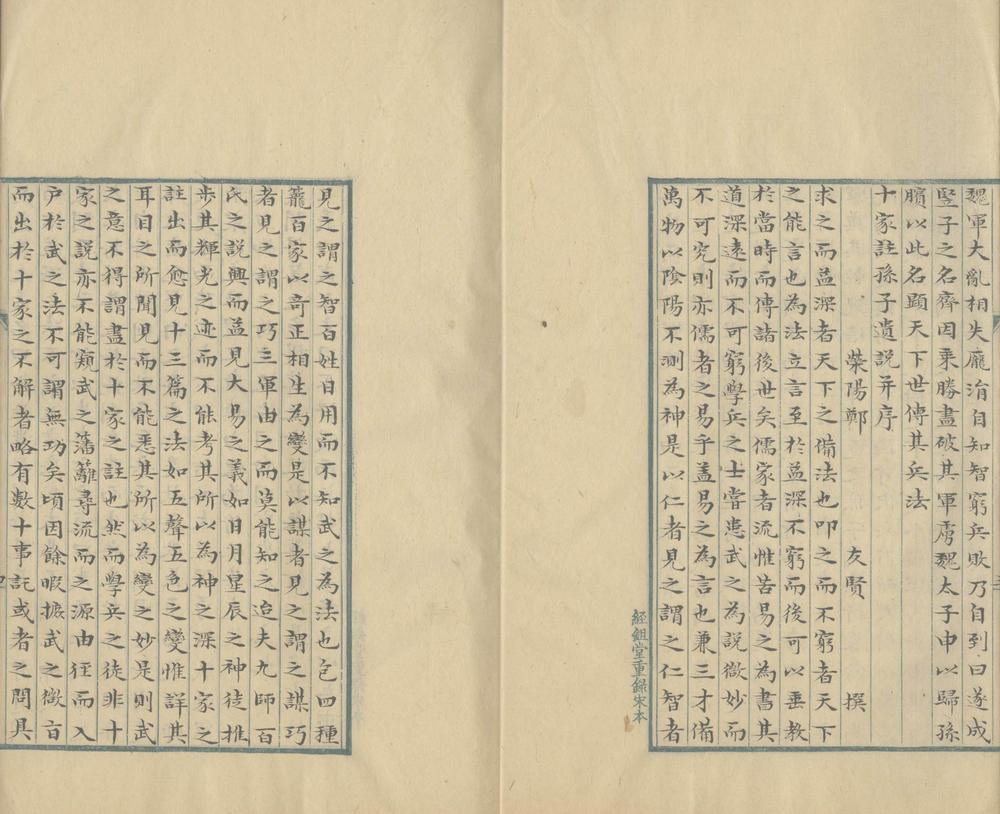 魏軍大亂相失龐涓自知智窮兵敗乃自刭曰遂成
豎子之名齊因乘勝盡破其軍虜魏太子申以歸孫
臏以此名顯天下世傳其兵法
十家註孫子遺說并序
滎陽鄭友賢撰
求之而益深者天下之備法也叩之而不窮者天下
之能言也為法立言至於益深不窮而後可以垂教
於當時而傳諸後世矣儒家者流惟苦易之為書其
道深遠而不可窮學兵之士嘗患武之為說微妙而
不可究則亦儒者之易乎盖易之為言也兼三才備
萬物以陰陽不測為神是以仁者見之謂之仁智者
經鉏堂重錄宋本
見之謂之智百姓日用而不知武之為法也包四種
籠百家以奇正相生為變是以謀者見之謂之謀巧
者見之謂之巧三軍由之而莫能知之迨夫九師百
氏之說興而益見大易之義如日月星辰之神徒推
步其輝光之迹而不能考其所以為神之深十家之
註出而愈見十三篇之法如五聲五色之變惟詳其
耳目之所聞見而不能悉其所以為變之妙是則武
之意不得謂盡於十家之註也然而學兵之徒非十
家之說亦不能窺武之藩籬尋流而之源由徑而入
户於武之法不可謂無功矣頃因餘暇摭武之微旨
而出於十家之不解者略有數十事託或者之問具